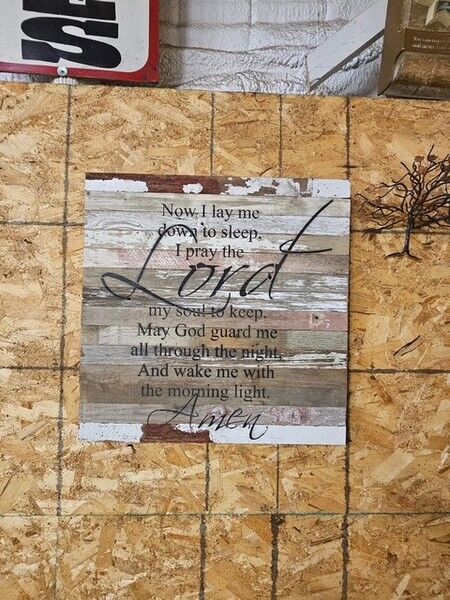 SE
Now I lay me
down to sleep,
I pray the
Lord
my soul to keep.
May God guard me
all through the night,
And wake me with
the morning light.
Amen